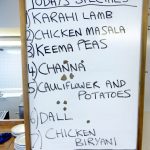 TODAYS SPECIALS
1) KARAHI LAMB
2) CHICKEN MASALA
3) KEEMA PEAS
4) CHANNA
5) CAULIFLOWER AND
POTATOES
6) DALL
7) CHICKEN
BIRYANI